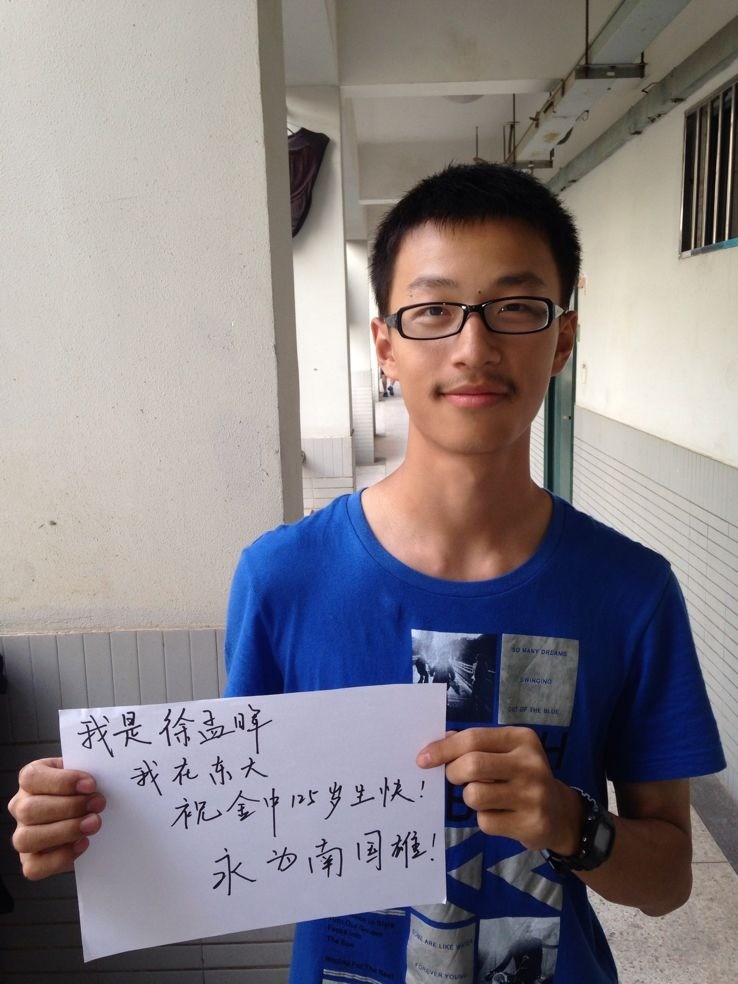 我是徐孟晖
我在东大
祝金中125岁生快!
永为南国雄!
SO MANY DREAMS
SWINGING
OUT OF THE BLUE
FOREVER YOUNG